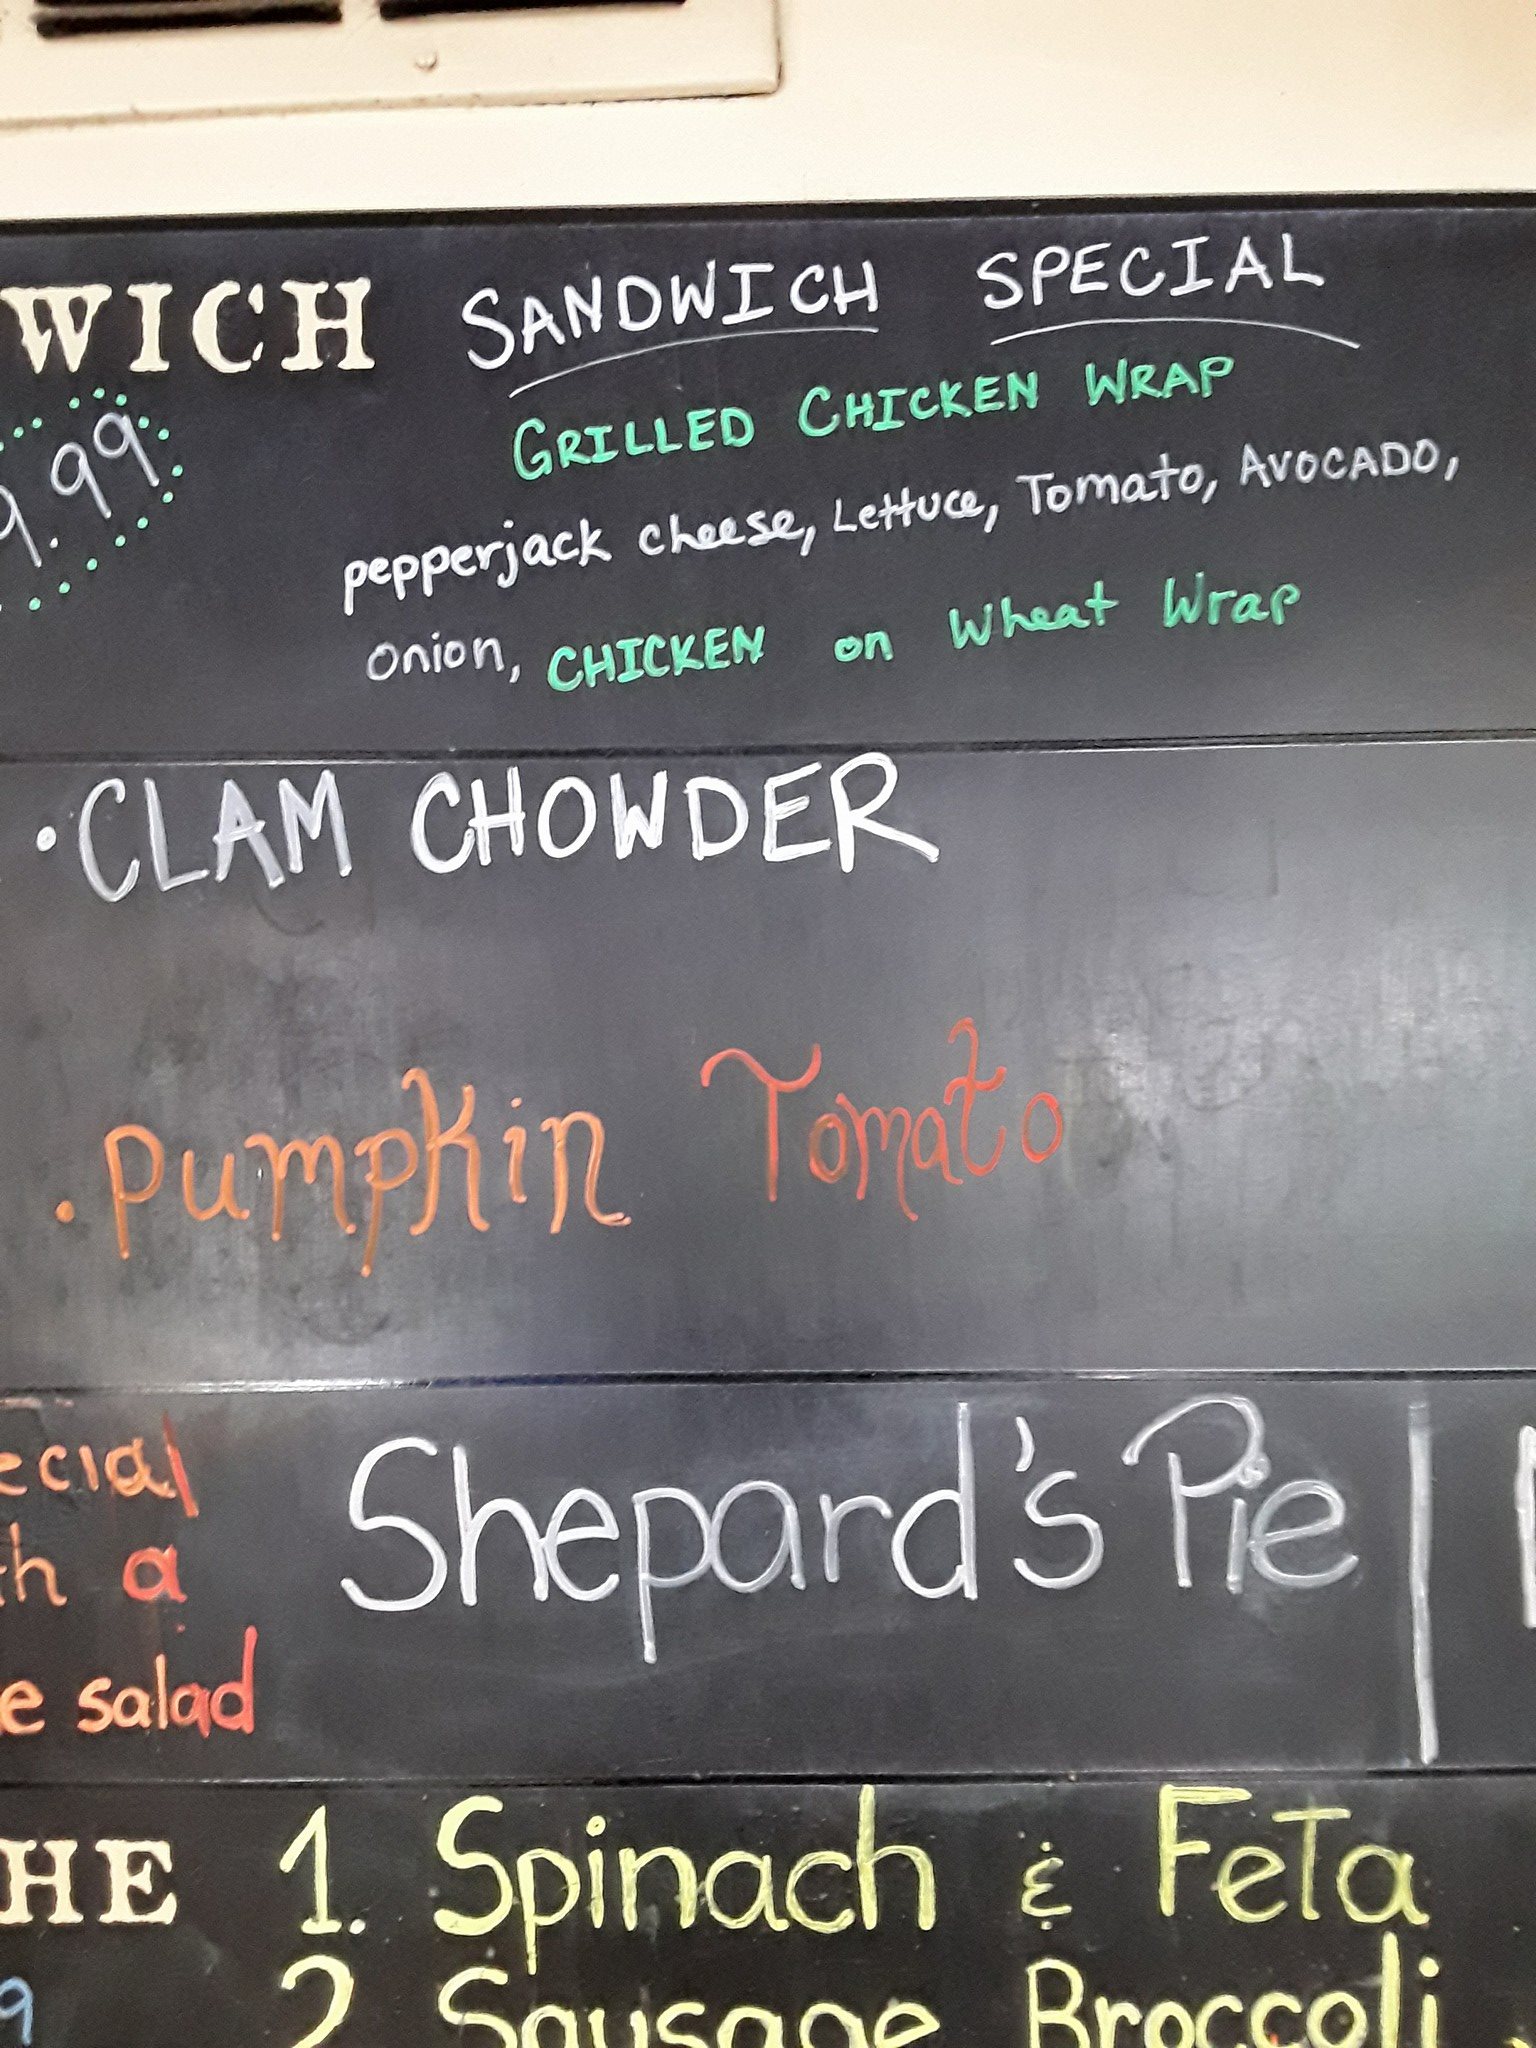 WICH SANDWICH SPECIAL
9.99 GRILLED CHICKEN WRAP
pepperjack cheese, Lettuce, Tomato, AVOCADO,
onion, CHICKEN on Wheat Wrap
• CLAM CHOWDER
• Pumpkin Tomato
ecial Shepard's Pie |
th a
e salad
HE 1. Spinach & Feta
9 2 Sausage Broccoli